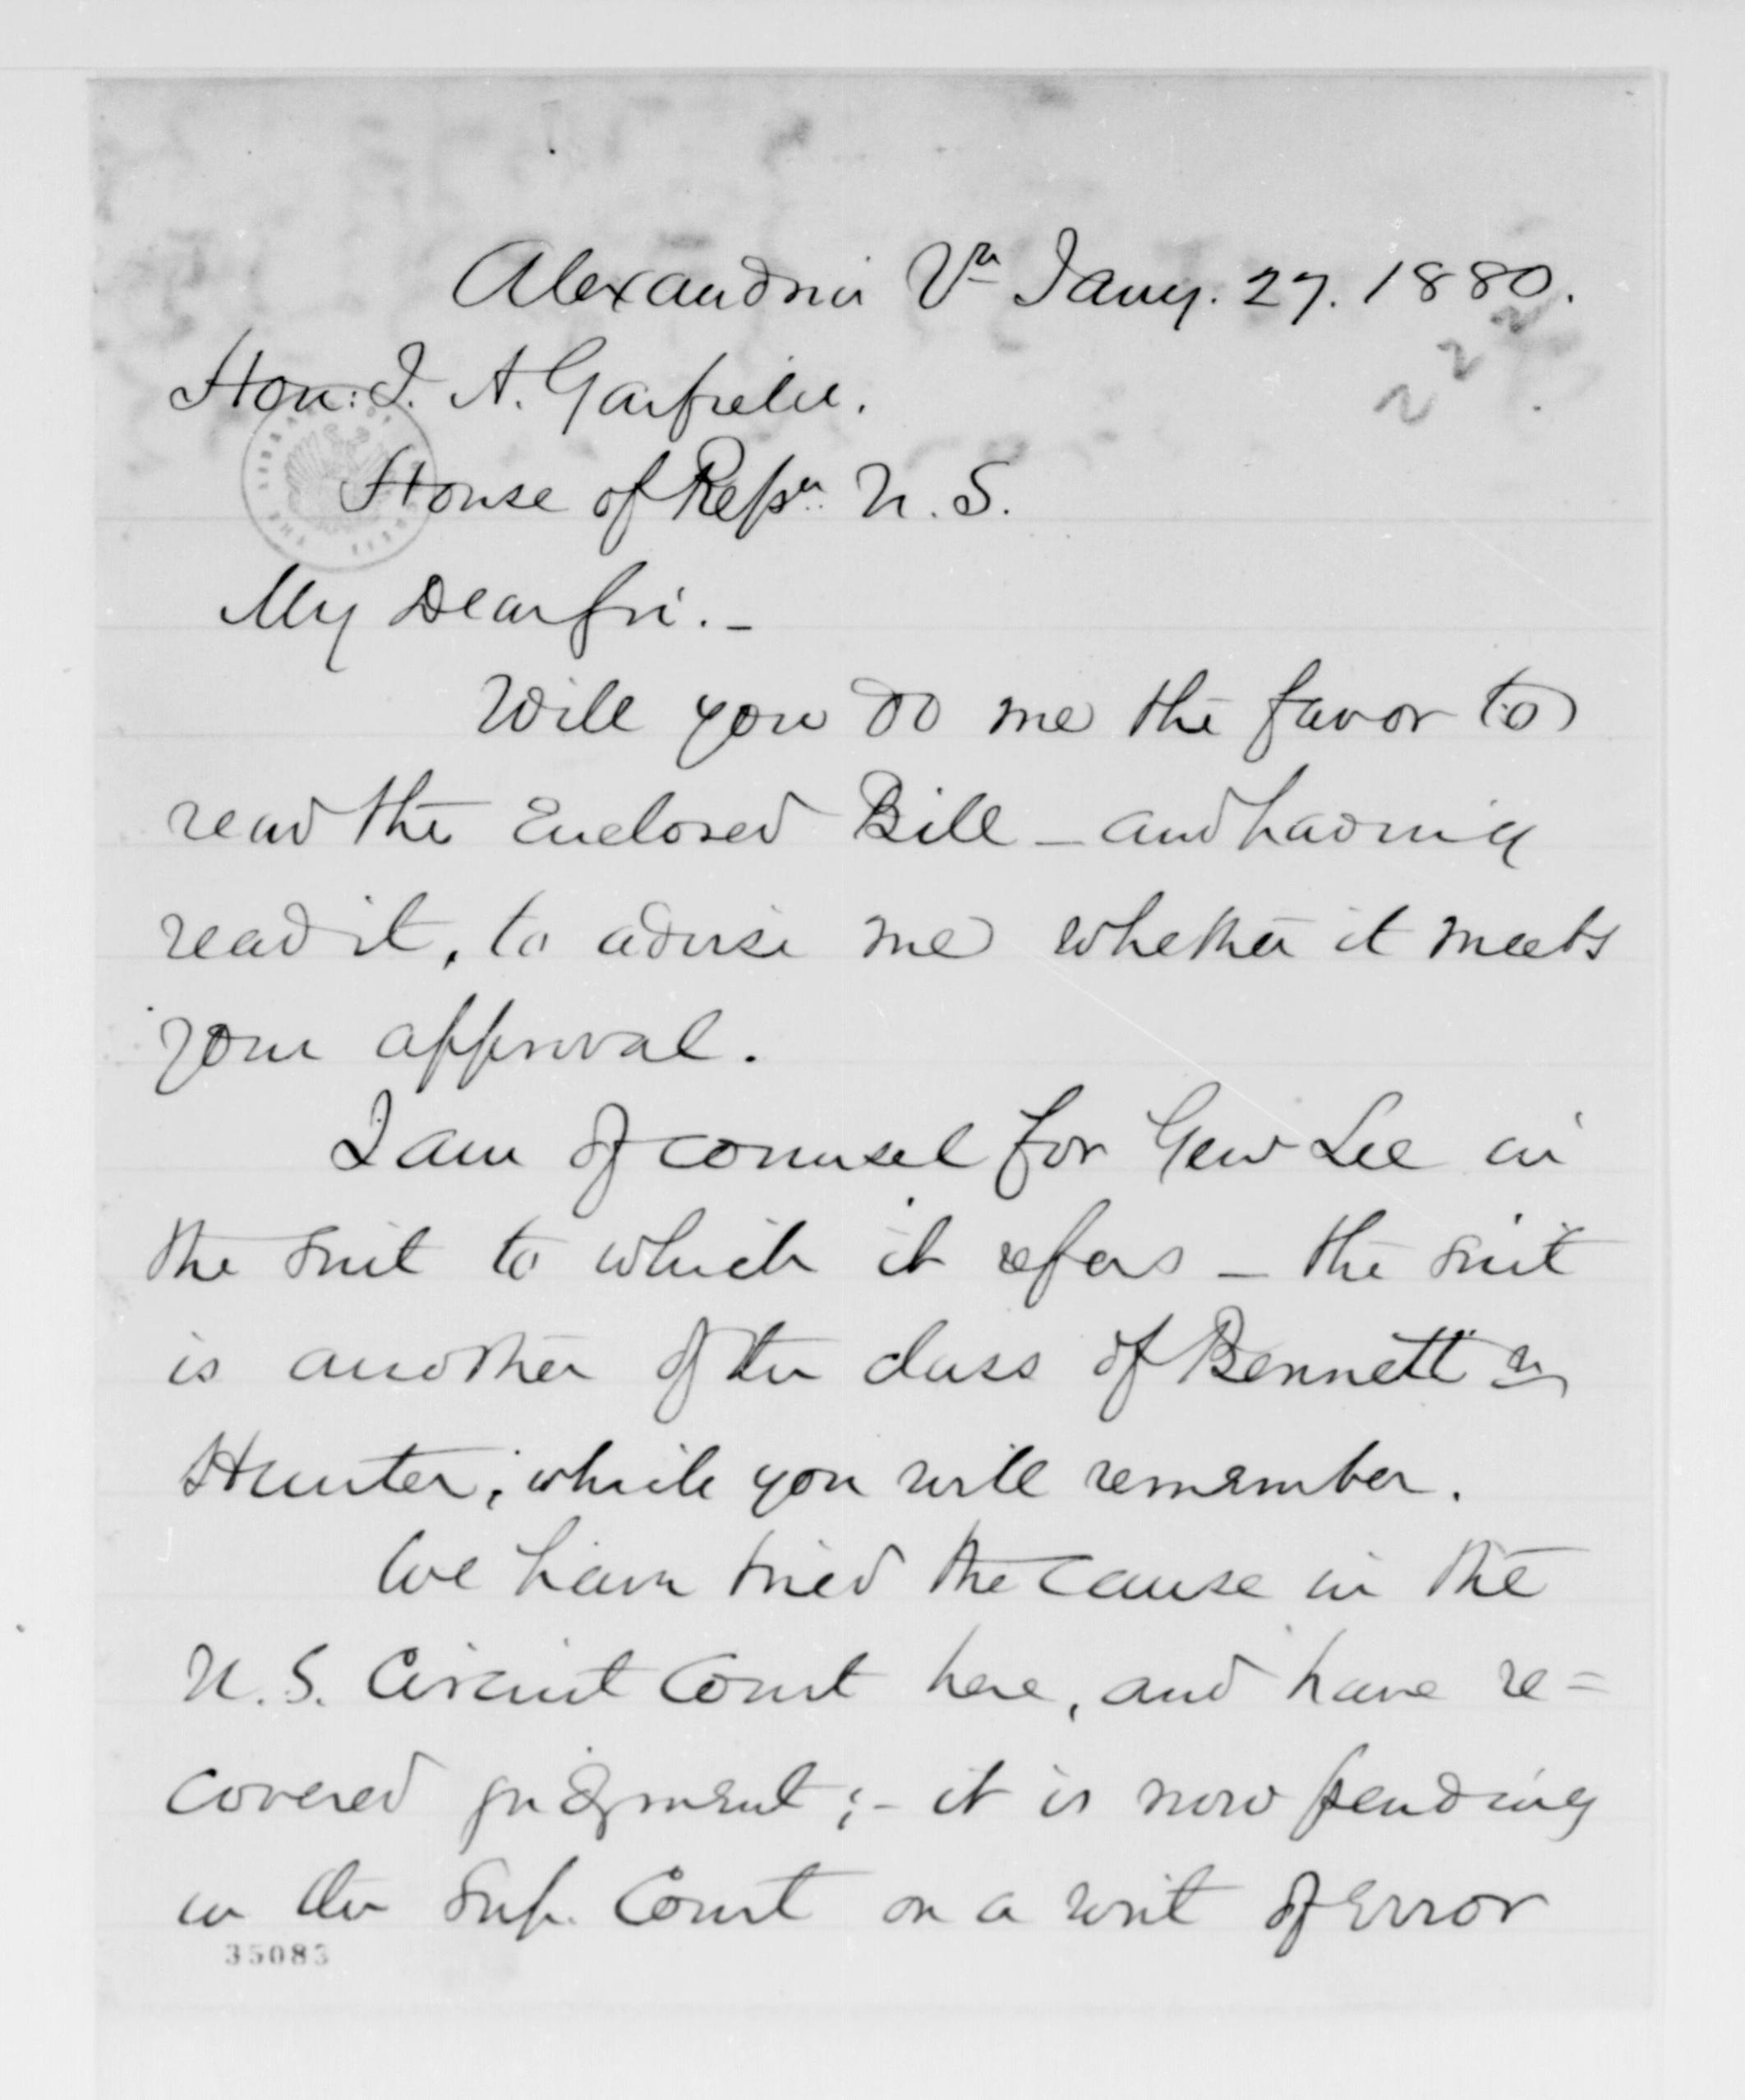 Alexandria Va Jany. 27. 1880.
Hon: J. A. Garfield.
House of Reps. U. S.
My Dear Sir. -
Will you do me the favor to
read the Enclosed Bill - and having
read it, to advise me whether it meets
your approval.
I am of counsel for Genl Lee in
the suit to which it refers - the suit
is another of the class of Bennett vs
Hunter; which you will remember.
We have tried the cause in the
U. S. Circuit Court here, and have re=
covered judgment; - it is now pending
in the Sup. Court on a writ of Error
35083